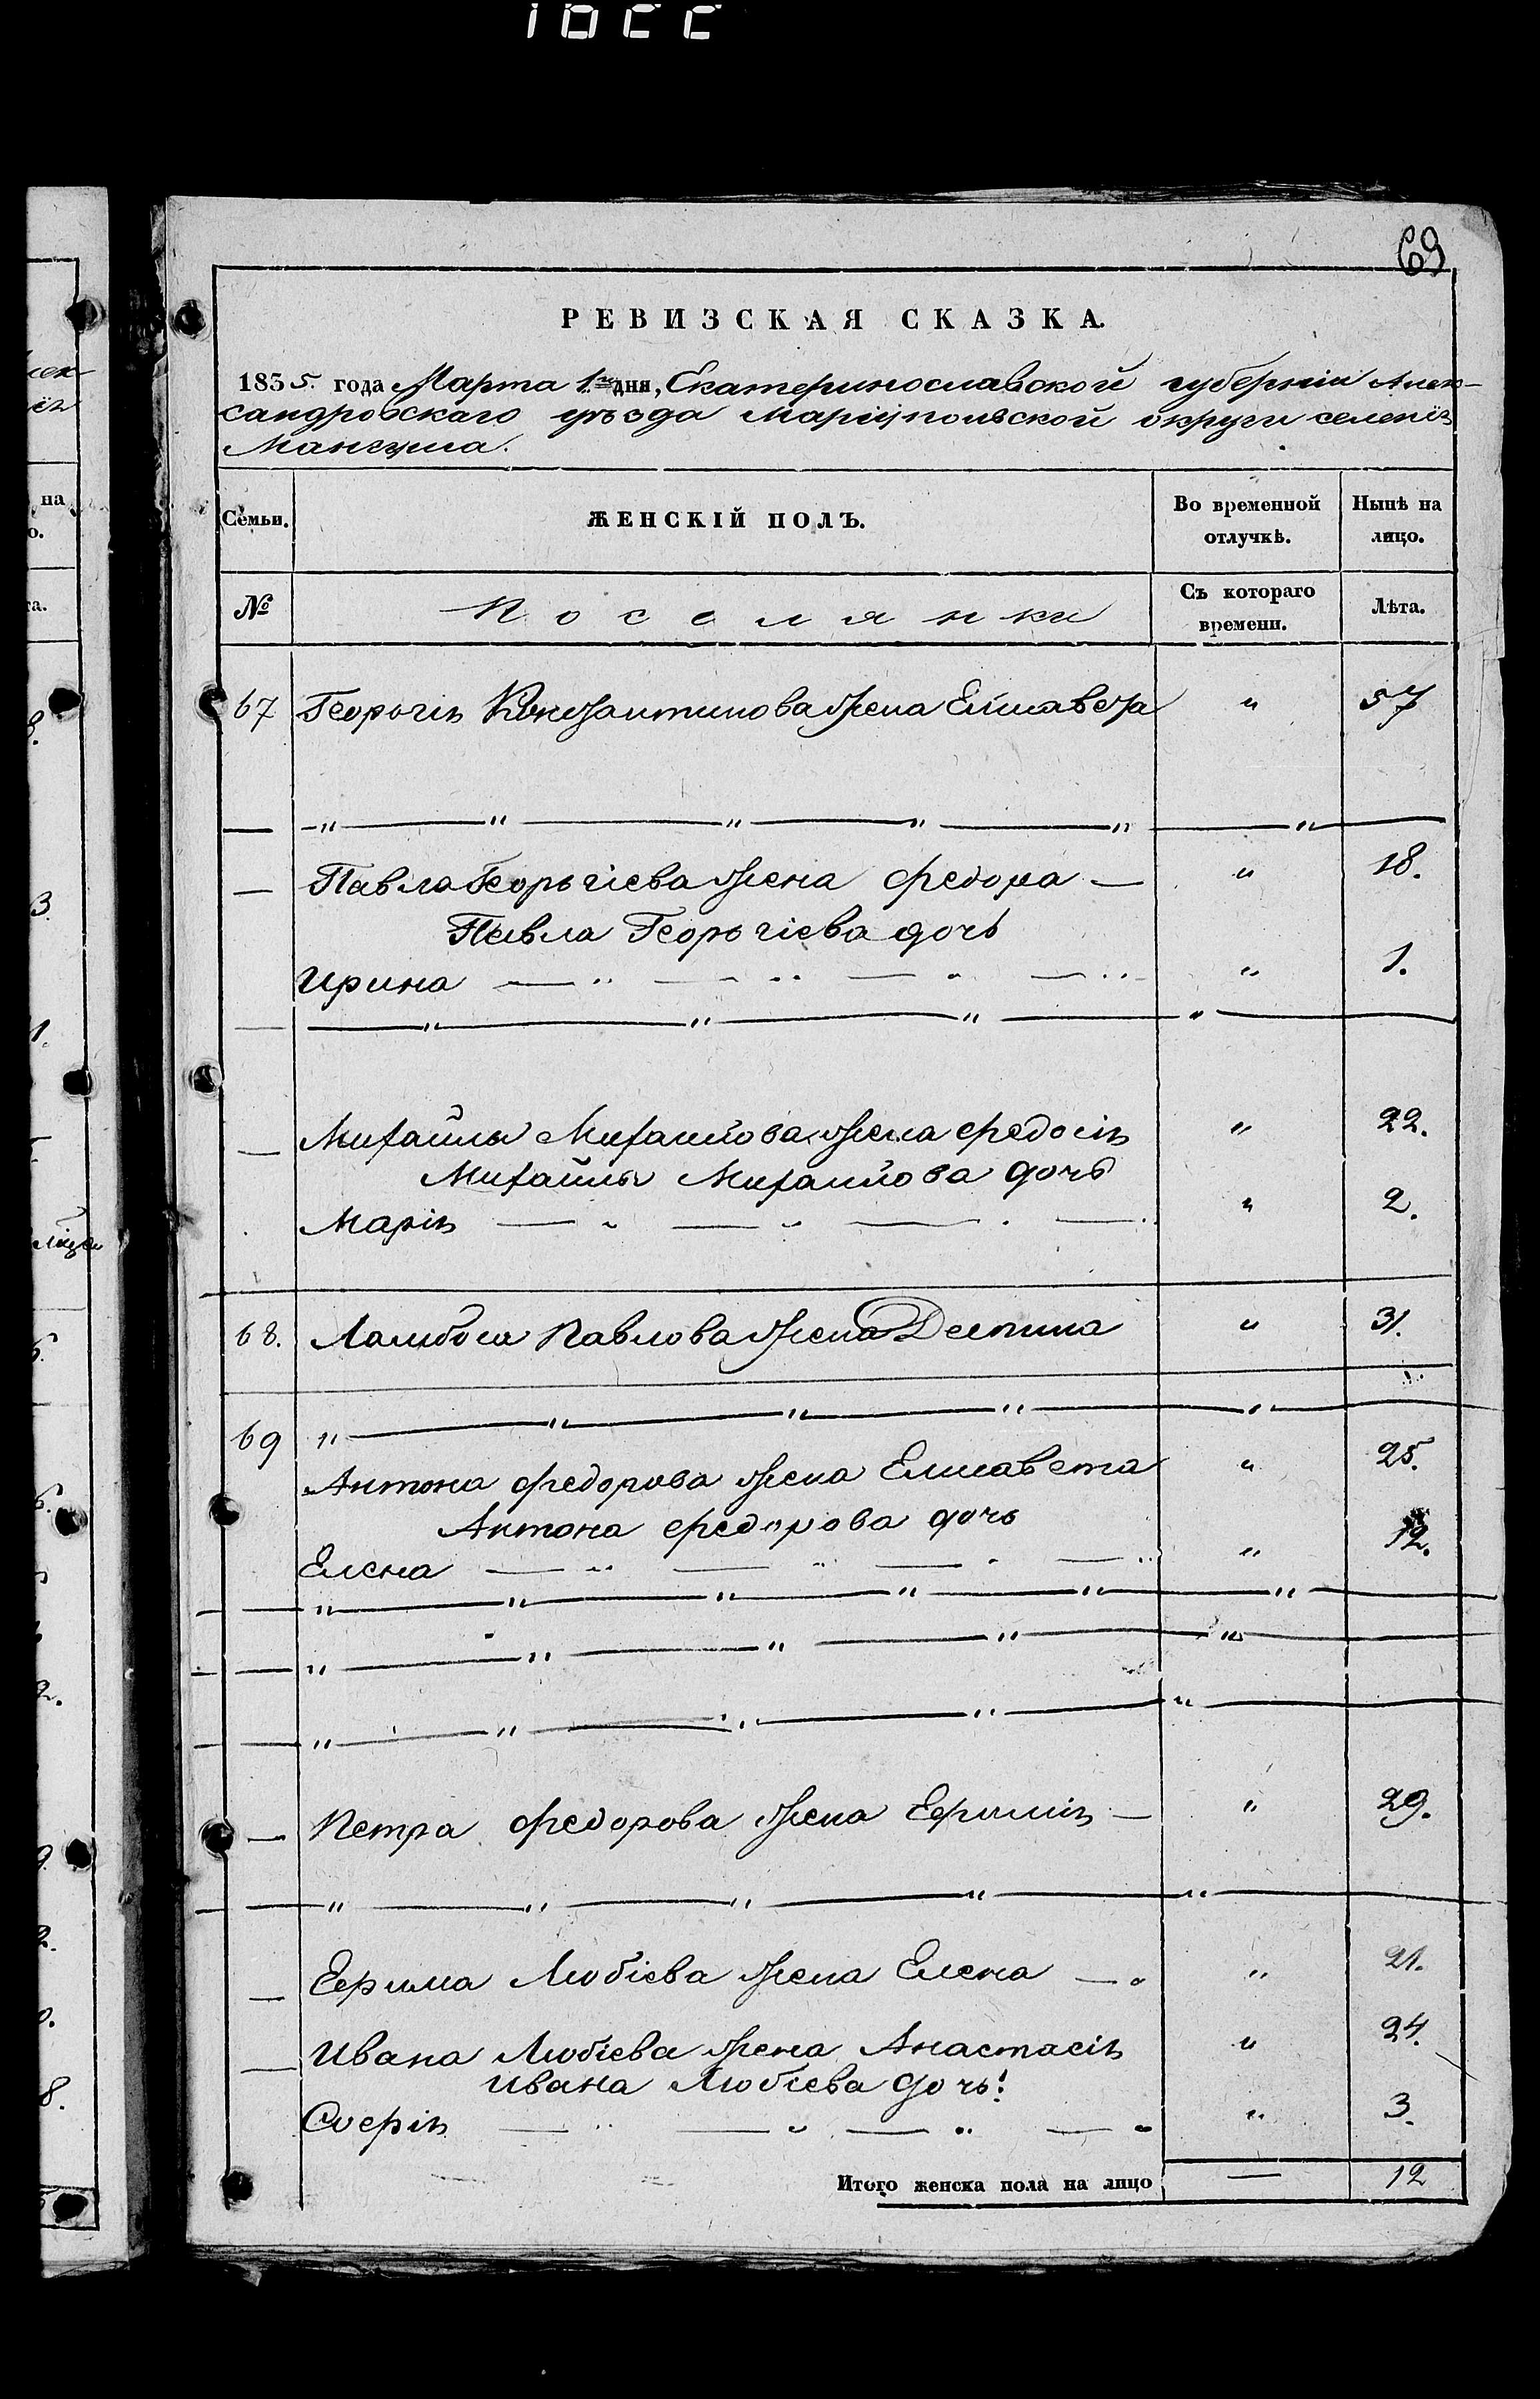 69
РЕВИЗСКАЯ СКАЗКА.
1835. года Марта 1го дня, Екатеринославской губерніи Алек-
сандровскаго уѣзда Маріупольской округи селенія
Мангуша.
Семьи. ЖЕНСКІЙ ПОЛЪ. Во временной отлучкѣ. Нынѣ на лицо.
№ Поселянки Съ котораго времени. Лѣта.
67 Георгія Константинова жена Елисавета " 57
— — " — " — " — " — " — " —
— Павла Георгіева жена Федора — " 18.
Павла Георгіева дочь
Ирина — " — " — " — " " 1.
— — " — " — " — " —
— Михайлы Михайлова жена Федосія " 22.
Михайлы Михайлова дочь
Марія — " — " — " — " " 2.
68. Ламбоя Павлова жена Деспина " 31.
69 " — " — " — " — " —
Антона Федорова жена Елисавета " 25.
Антона Федорова дочь
Елена — " — " — " — " " 12.
— " — " — " — " — " — " —
— " — " — " — " — " —
— " — " — " — " — " —
— Петра Федорова жена Ефимія — " 29.
— " — " — " — " — " —
— Ефима Любіева жена Елена — " " 21.
— Ивана Любіева жена Анастасія " 24.
Ивана Любіева дочь:
Софія — " — " — " — " " 3.
Итого женска пола на лицо — 12